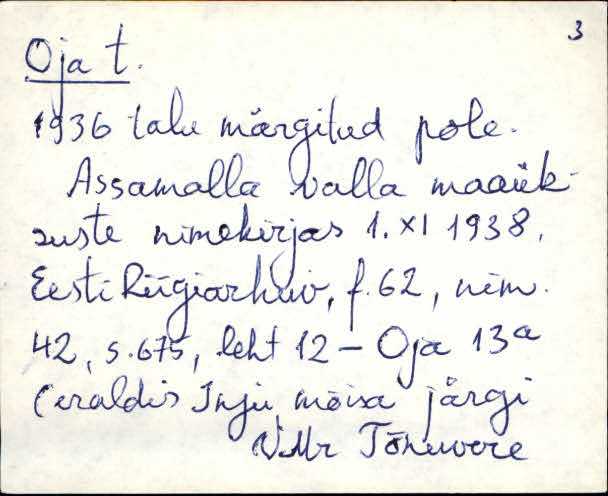 3
Oja t.
1936 talu märgitud pole.
Assamalla valla maaük-
suste nimekirjas 1. XI 1938,
Eesti Riigiarhiiv, f. 62, nim.
42, s. 675, leht 12 – Oja 13a
(eraldis Inju mõisa järgi
VMr Tõnuvere